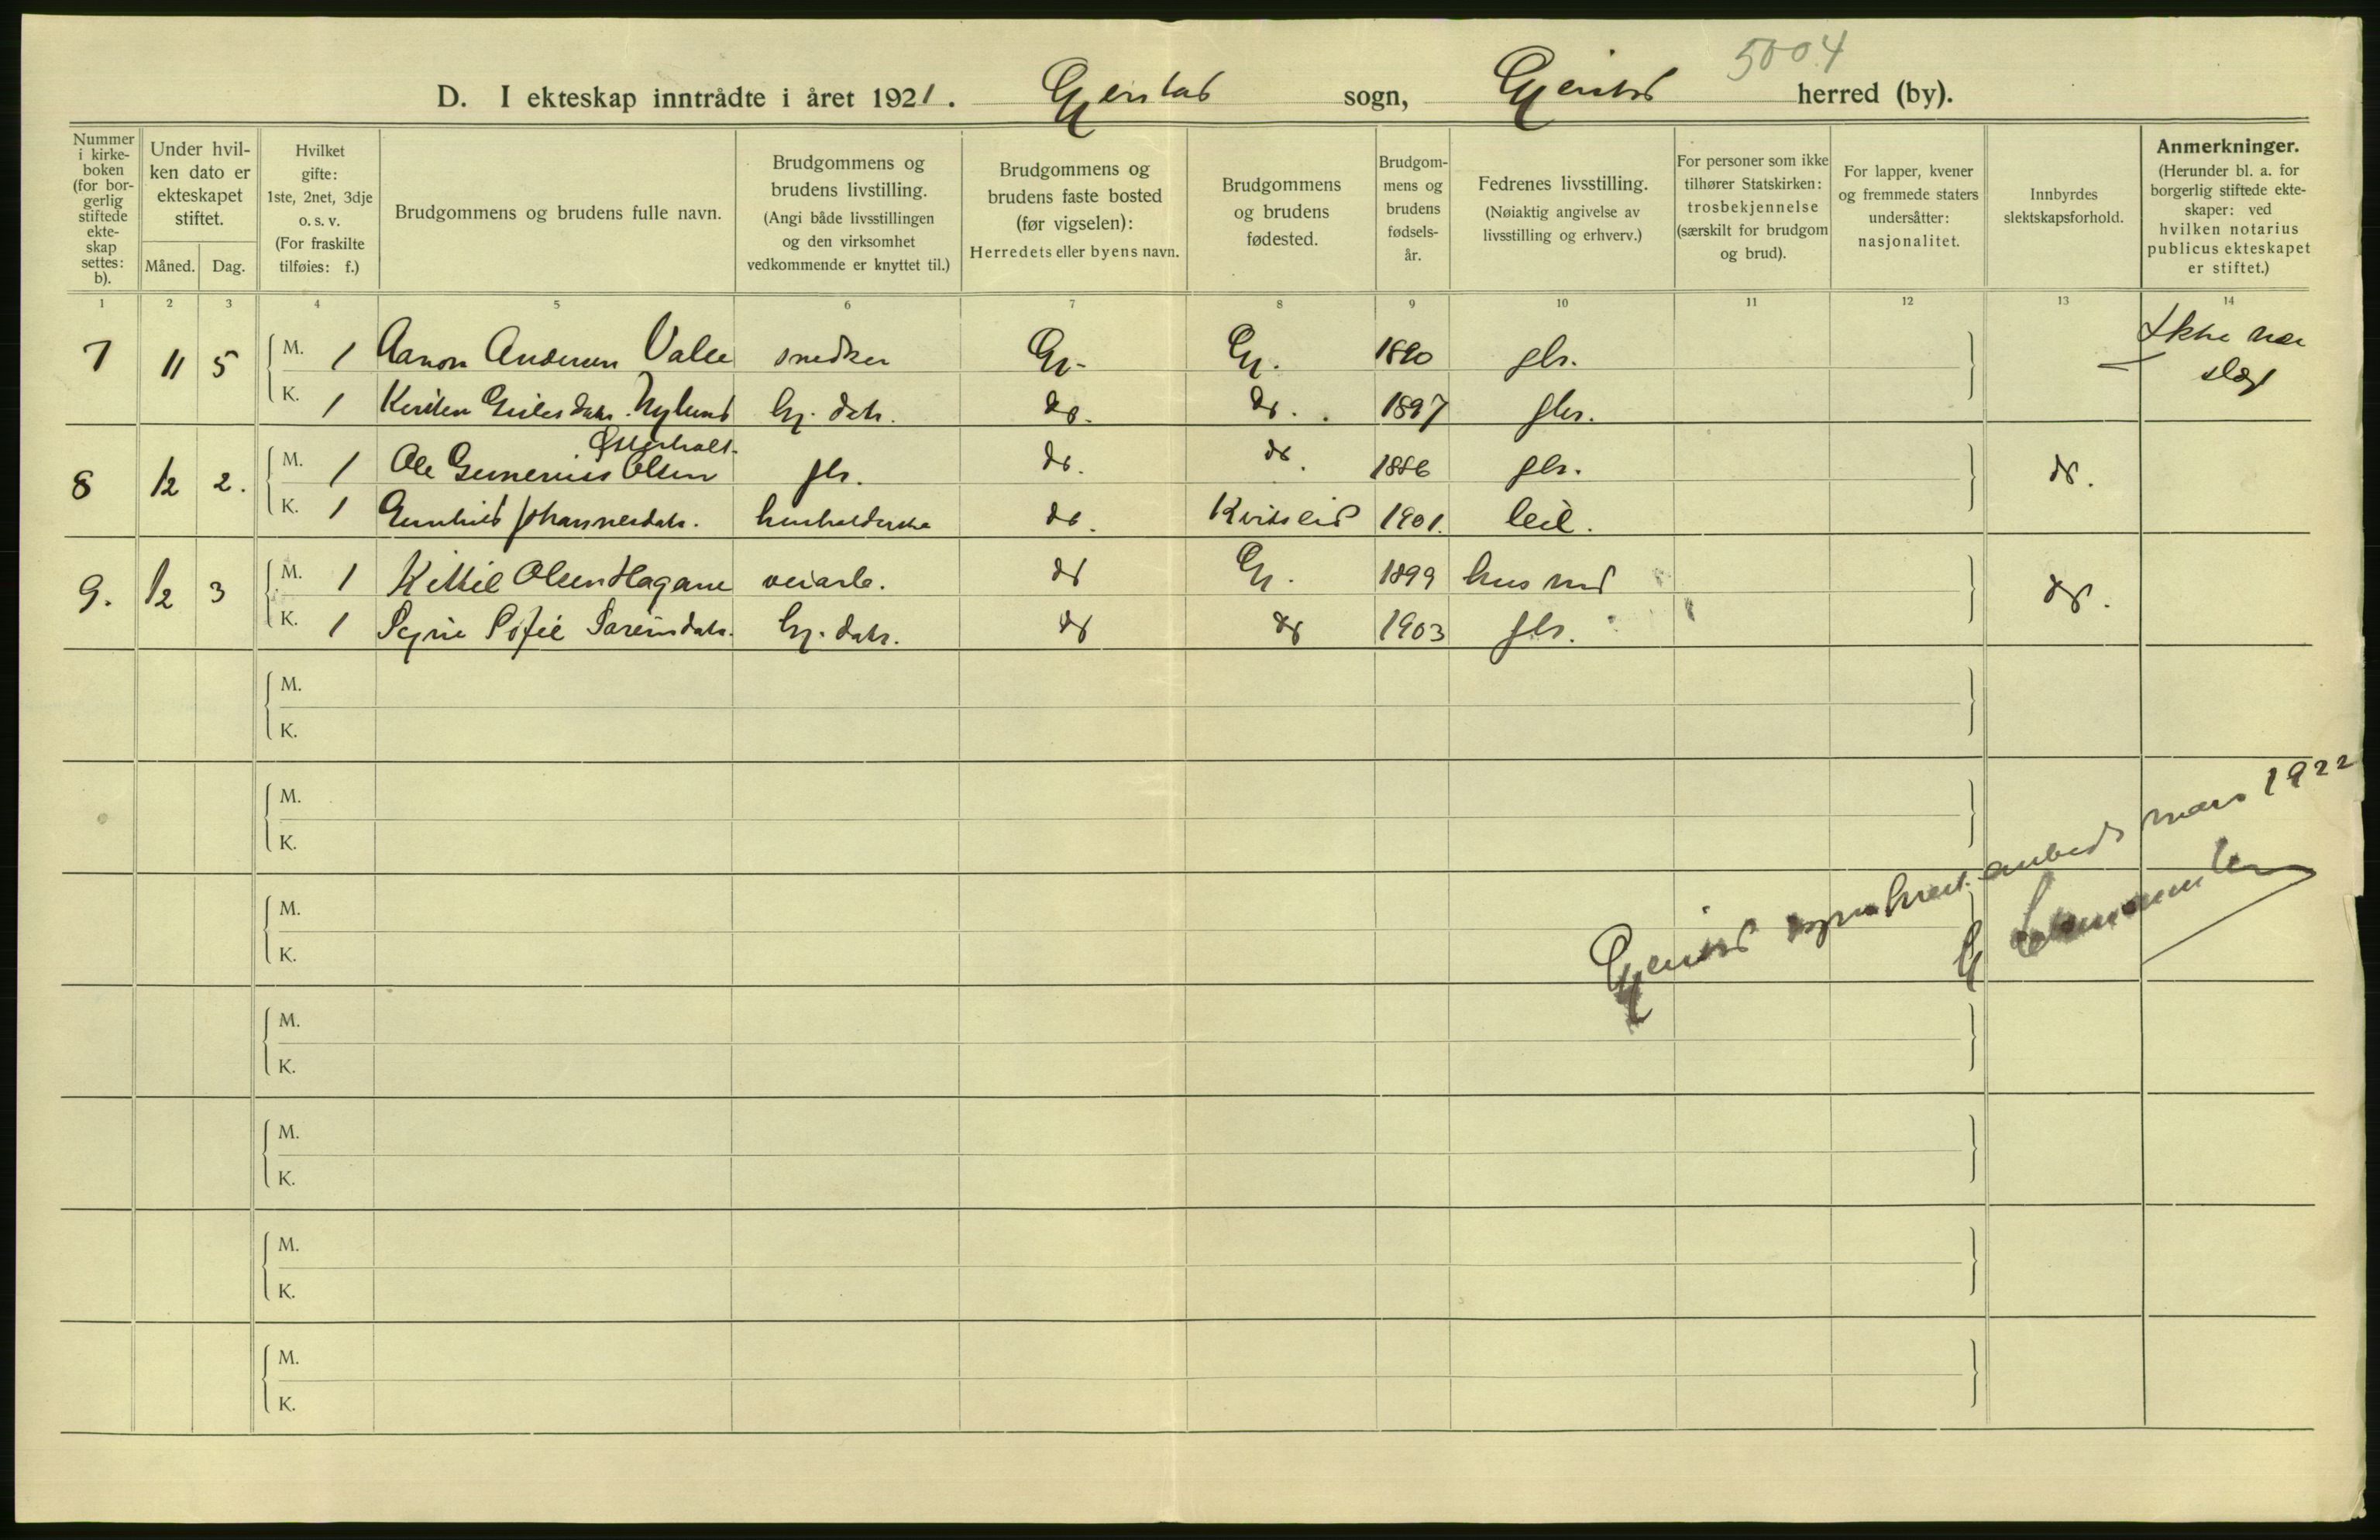 5004
D. I ekteskap inntrådte i året 1921. Gjerstad sogn, Gjerstad herred (by).
Nummer i kirkeboken (for borgerlig stiftede ekteskap settes: b).
Under hvilken dato er ekteskapet stiftet.
Måned. Dag.
Hvilket gifte: 1ste, 2net, 3dje o. s. v. (For fraskilte tilføies: f.)
Brudgommens og brudens fulle navn.
Brudgommens og brudens livstilling. (Angi både livsstillingen og den virksomhet vedkommende er knyttet til.)
Brudgommens og brudens faste bosted (før vigselen): Herredets eller byens navn.
Brudgommens og brudens fødested.
Brudgommens og brudens fødselsår.
Fedrenes livsstilling. (Nøiaktig angivelse av livsstilling og erhverv.)
For personer som ikke tilhører Statskirken: trosbekjennelse (særskilt for brudgom og brud).
For lapper, kvener og fremmede staters undersåtter: nasjonalitet.
Innbyrdes slektskapsforhold.
Anmerkninger. (Herunder bl. a. for borgerlig stiftede ekteskaper: ved hvilken notarius publicus ekteskapet er stiftet.)
1 2 3 4 5 6 7 8 9 10 11 12 13 14
7 11 5 M. 1 Aanon Andersen Valle snedker Gj. Gj. 1890 gbr. Ikke nær slægt
K. 1 Kirsten Nylund Gj. datr. do. do. 1897 gbr.
Østerholt
8 12 2. M. 1 Ole Gunerius Olsen gbr. do. do. 1886 gbr. do.
K. 1 Gunhild Johannesdatr. husholderske do. Kvitseid 1901. leil.
9. 12 3 M. 1 Kittil Olsen Hagane veiarb. do Gj. 1899 husmd do.
K. 1 Signe Sofie Sørensdatr. Gj. datr. do do 1903 gbr.
M.
K.
M.
K.
M.
K.
M.
K.
M.
K.
M.
K.
M.
K.
Gjerstad sogneprest embede mars 1922